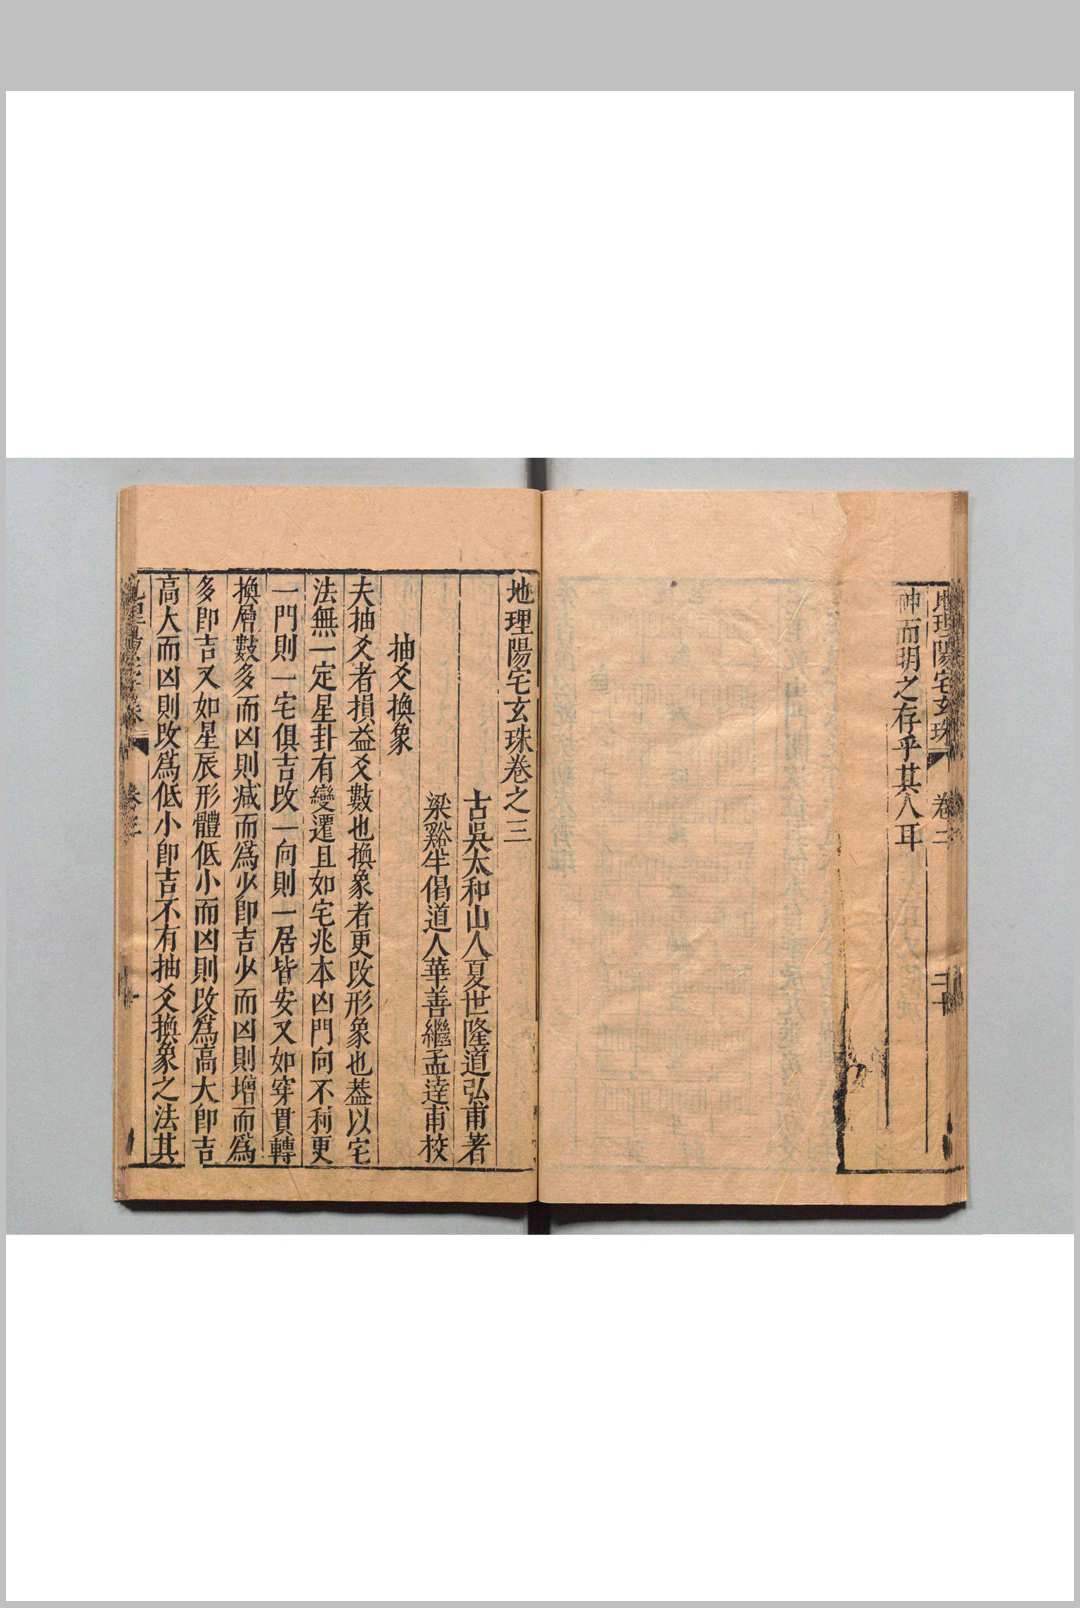 地理陽宅玄珠 卷二 二十
神而明之存乎其人耳
地理陽宅玄珠卷之三
古吳太和山人夏世隆道弘甫著
梁谿牛偈道人華善繼孟達甫校
抽爻換象
夫抽爻者損益爻數也換象者更改形象也葢以宅
法無一定星卦有變遷且如宅兆本凶門向不利更
一門則一宅俱吉改一向則一居皆安又如穿貫轉
換層數多而凶則减而為少即吉少而凶則增而為
多即吉又如星辰形體低小而凶則改為高大即吉
高大而凶則改為低小即吉不有抽爻換象之法其
卷三 一